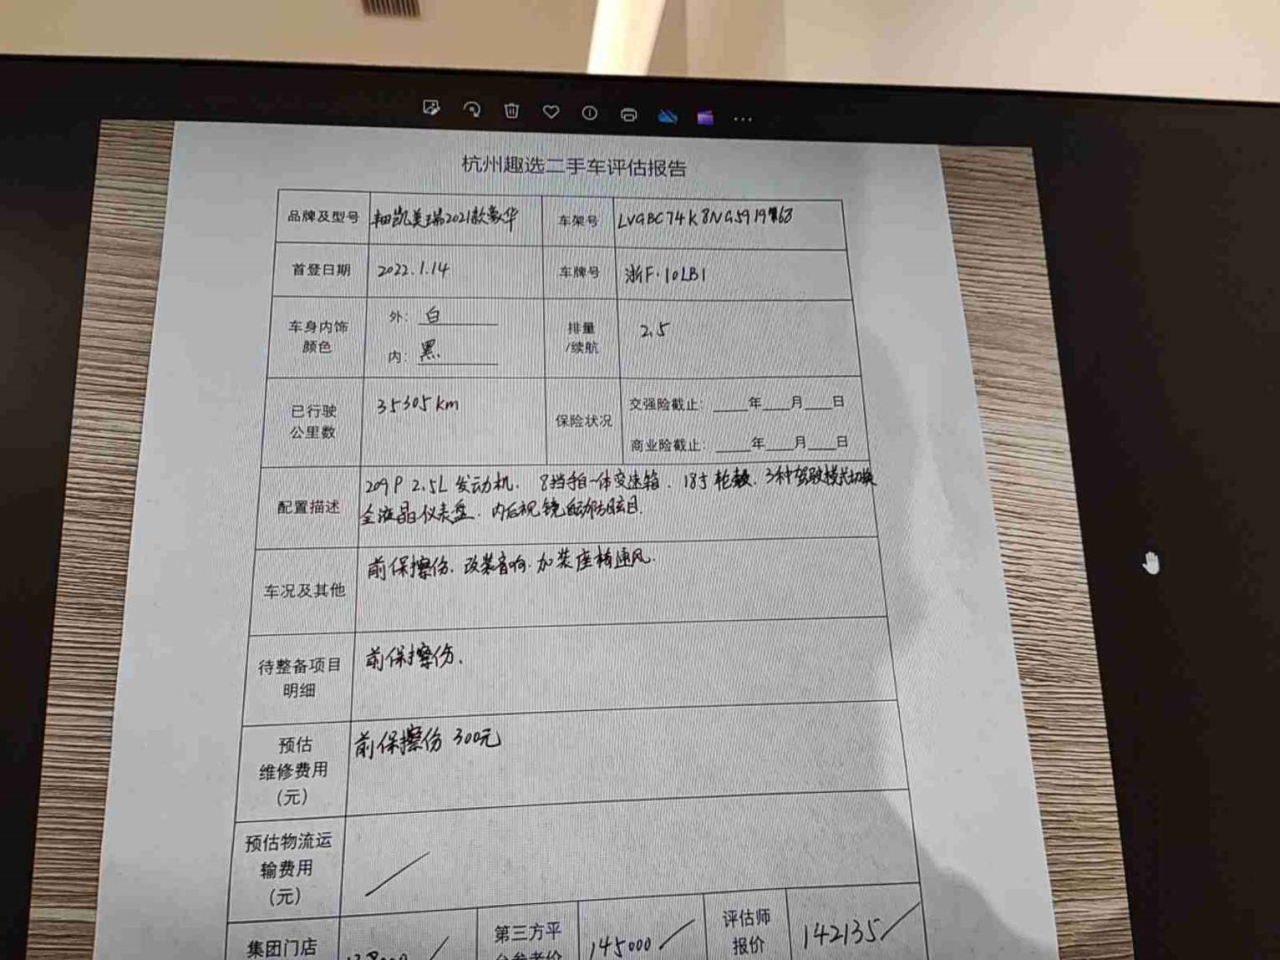 杭州趣选二手车评估报告
品牌及型号 丰田凯美瑞2021款豪华 车架号
首登日期 2022.1.14 车牌号 浙F·10LB1
车身内饰颜色 外: 白 内: 黑 排量/续航 2.5
已行驶公里数 35305km 保险状况 交强险截止: ___年___月___日
商业险截止: ___年___月___日
配置描述 209P 2.5L发动机. 8挡手自一体变速箱. 18寸轮毂. 3种驾驶模式切换
全液晶仪表盘. 内后视镜自动防眩目.
车况及其他 前保擦伤. 改装音响. 加装座椅通风.
待整备项目明细 前保擦伤.
预估维修费用(元) 前保擦伤 300元
预估物流运输费用(元) /
集团门店 第三方平 145000 / 评估师报价 142135 /